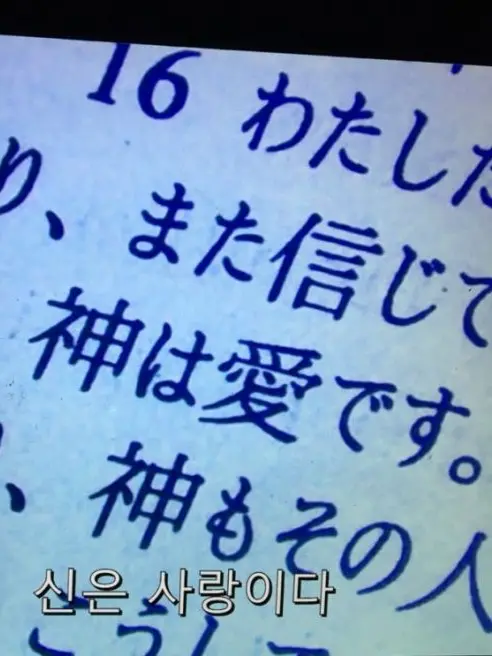 16 わたした
り、また信じて
神は愛です。
、神もその人
신은 사랑이다
こうして